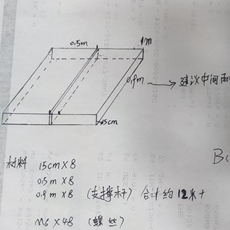 0.5m
1m
0.9m → 建议中间
15cm
材料 15cm×8
0.5m×8
0.9m×8 (支撑杆) 合计约12米+
M6×48 (螺丝)